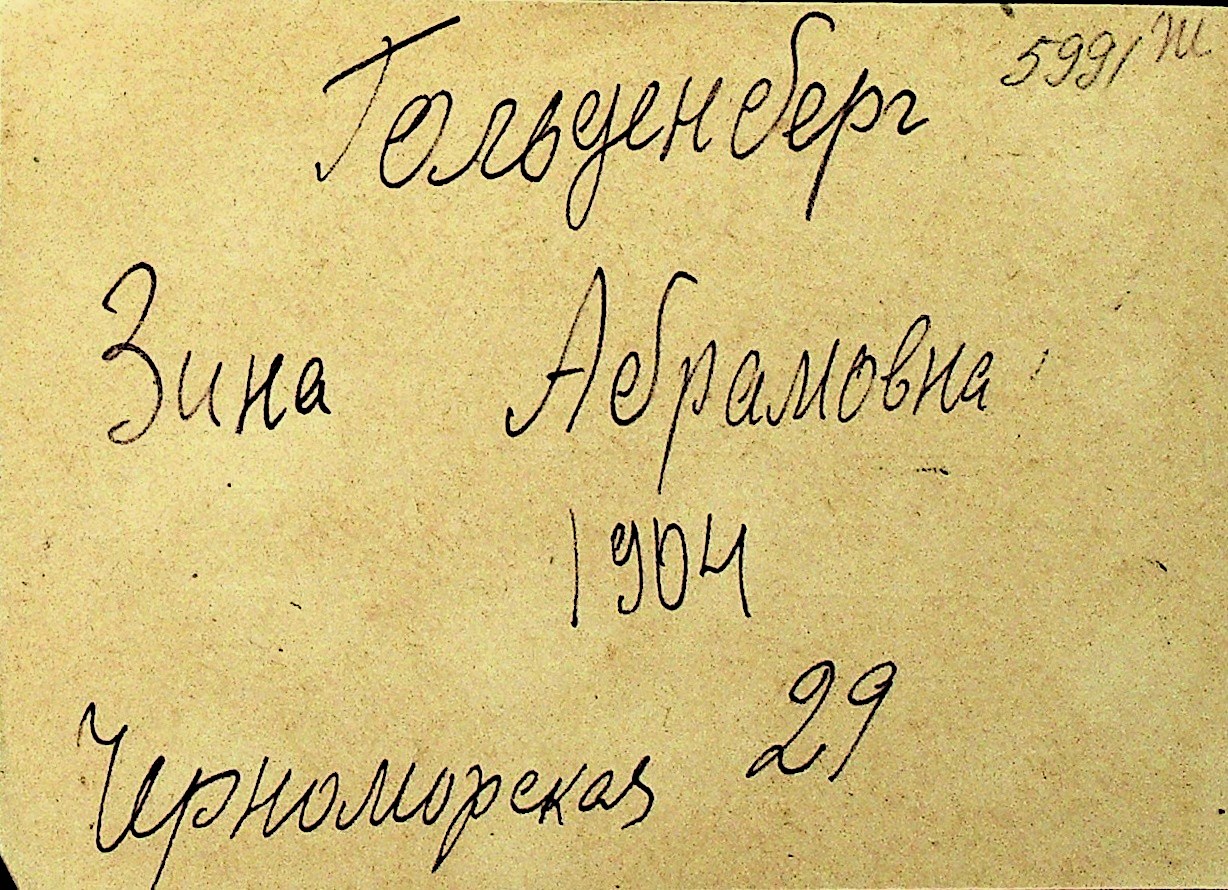 599/Ш
Гольденберг
Зина Абрамовна
1904
Черноморская 29